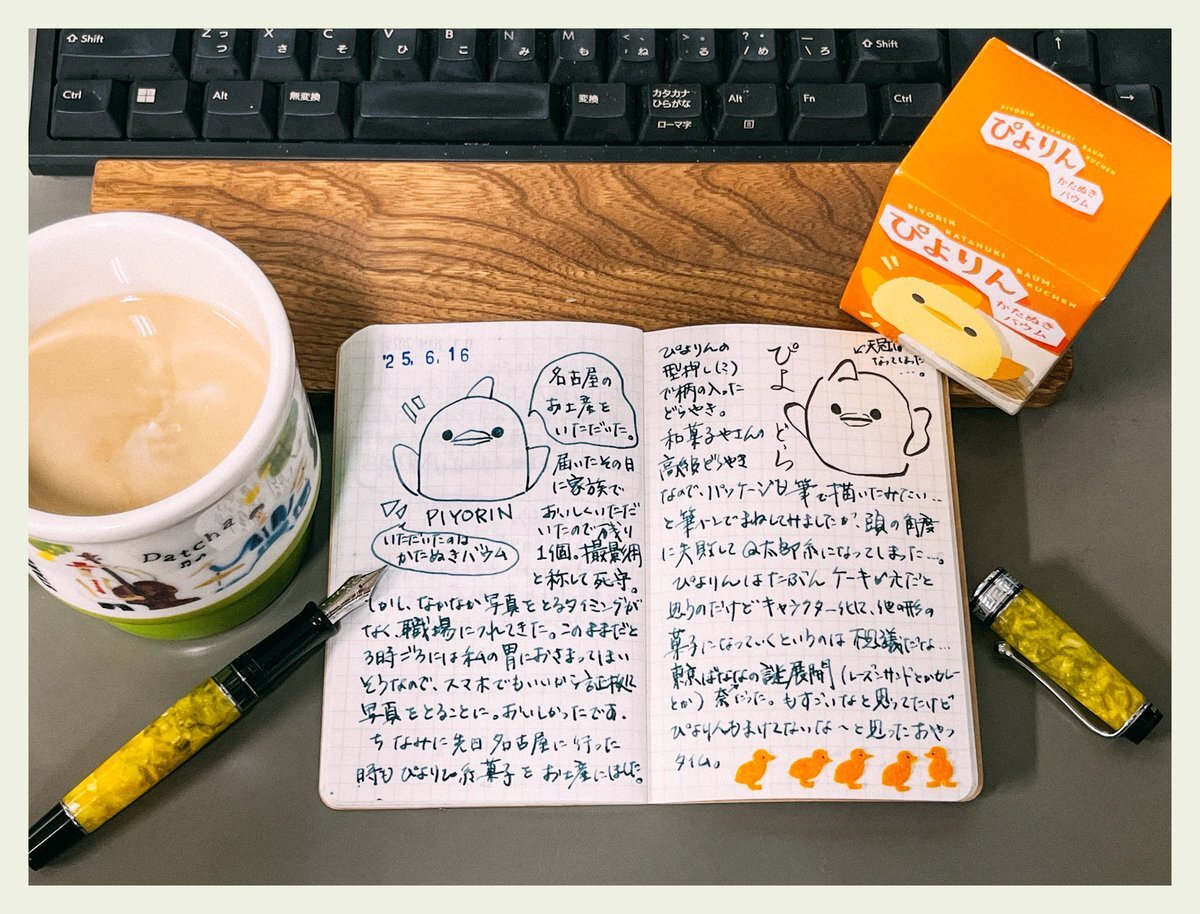 Shift
Z つ っ
X さ
C そ
V ひ
B こ
N み
M も
< 、 , ね
> 。 . る
? ・ / め
_ \ ろ
Shift
↑
Ctrl
Alt
無変換
変換
カタカナ
ひらがな
ローマ字
Alt
Fn
Ctrl
→
PIYORIN KATANUKI BAUM-KUCHEN
ぴよりん
かたぬき
バウム
PIYORIN KATANUKI BAUM-KUCHEN
ぴよりん
かたぬき
バウム
Datcha
'25.6.16
名古屋の
お土産を
いただいた。
PIYORIN
いただいたのは
かたぬきバウム
届いたその日
に家族で
おいしくいただ
いたので残り
1個。撮影用
と称して死守。
しかし、なかなか写真をとるタイミングが
なく、職場につれてきた。このままだと
3時ごろには私の胃におさまってしまい
そうなので、スマホでもいいから証拠に
写真をとることに。おいしかったです。
ちなみに先日名古屋に行った
時もぴよりん系菓子をお土産にしました。
ぴよりんの
型押し(?)
で柄の入った
どらやき。
和菓子やさんの
高級どらやき
ぴよ
どら
なってしまった
…。
なので、パッケージも筆で描いたみたい…
と筆ペンでまねしてみましたが、頭の角度
に失敗してQ太郎系になってしまった…。
ぴよりんはたぶんケーキが元だと
思うのだけどキャラクター化し、他の形の
菓子になっていくというのは不思議だな…
東京ばななの謎展開(レーズンサンドとかカレー
とか)だった。もすごいなと思ってたけど
ぴよりんもまけてないな〜と思ったおやつ
タイム。